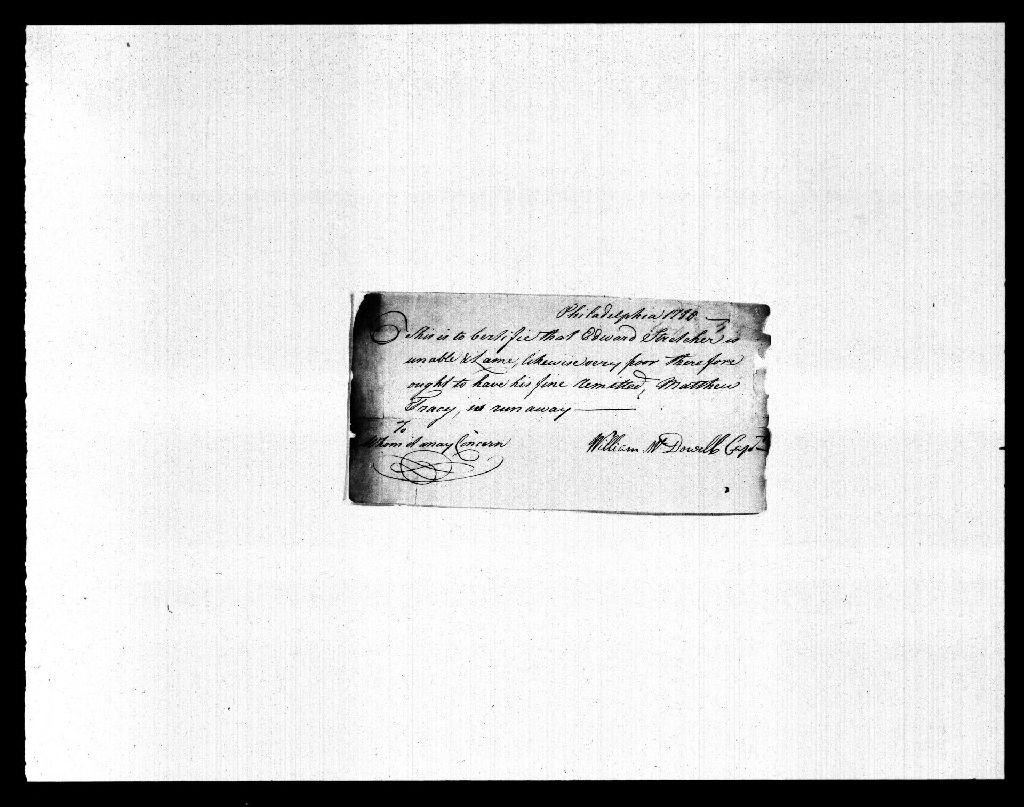 Philadelphia 1778
This is to Certifie that Edward Fletcher is
unable & Lame, likewise very poor therefore
ought to have his fine remitted, Matthew
Tracy, is run away
To
Whom it may Concern
William Mc Dowell Capt